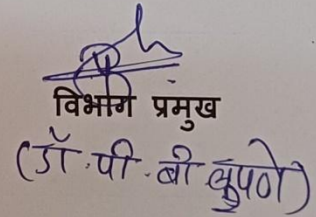 विभाग प्रमुख
(डॉ. पी. बी. कुपणे)